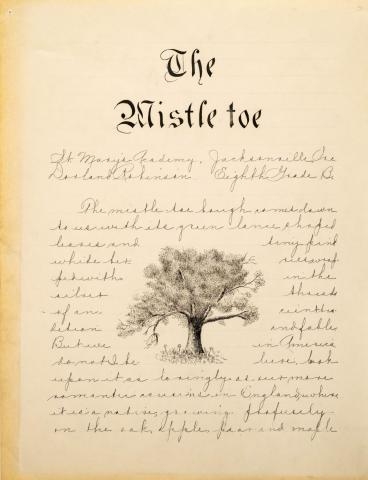 The
Mistletoe
St. Mary's Academy, Jacksonville Ore
Dorland Robinson Eighth Grade B.
The mistle toe bough comes down
to us with its green lance shaped
leaves and tiny
white
with in the
silver threads
of an
dition and fable
But we in America
do not I be lieve, look
upon it as lovingly as our more
romantic cousins in England, where
it is a native, growing profusely
on the oak, apple, pear and maple